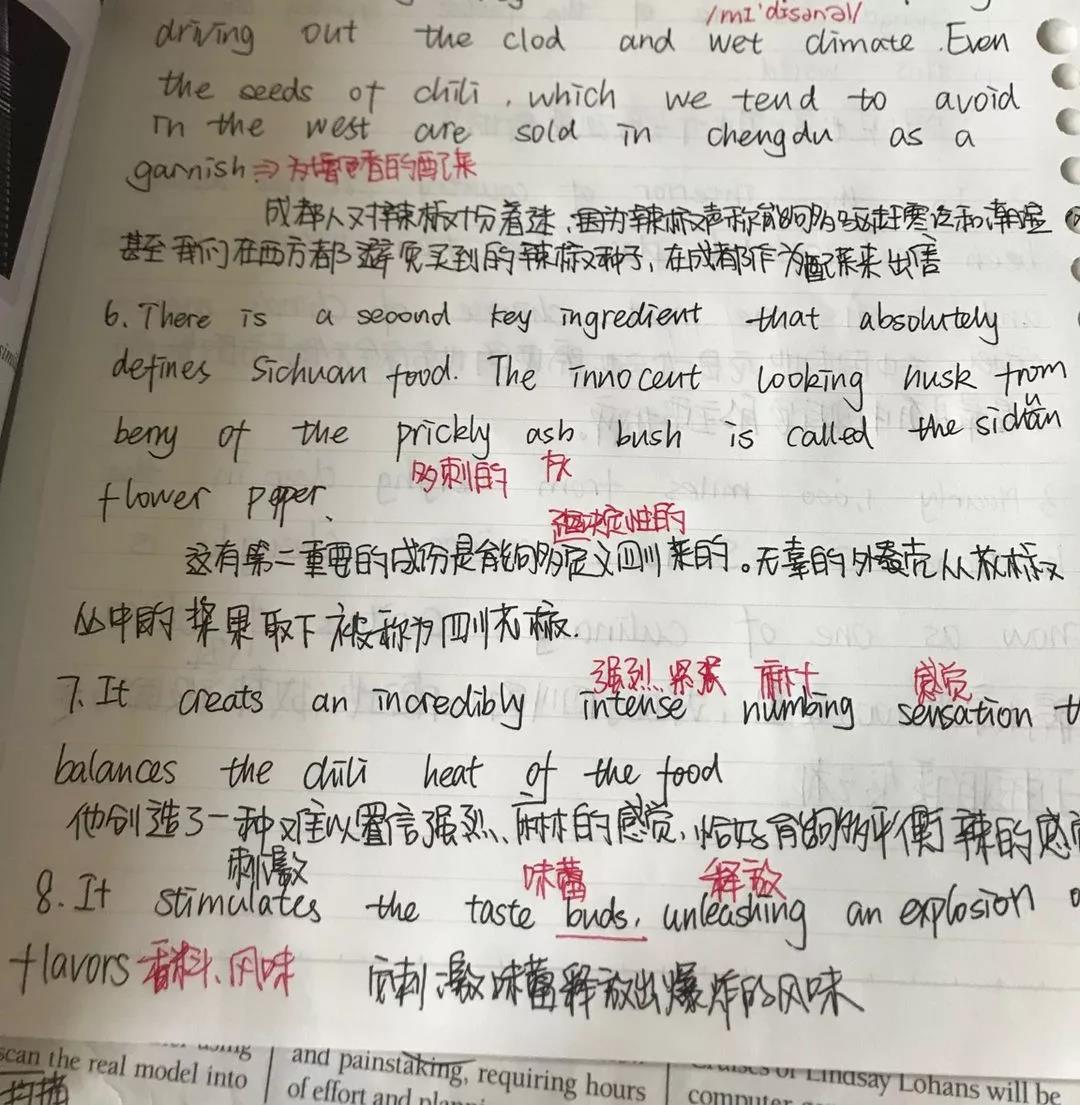 /mɪ'disənəl/
driving out the clod and wet climate. Even
the seeds of chili, which we tend to avoid
in the west are sold in chengdu as a
garnish ⇒ 为增香的配菜
成都人对辣椒十分着迷,因为辣椒声称能够驱赶寒冷和潮湿
甚至我们在西方都避免买到的辣椒种子,在成都作为配菜来出售
6. There is a seoond key ingredient that absolutely
defines Sichuan food. The innocent looking husk from
u
berry of the prickly ash bush is called the sichan
多刺的 灰
flower pepper.
决定性的
这有第二重要的成份是能够定义四川菜的。无辜的外壳从花椒
丛中的浆果取下被称为四川花椒.
强烈.紧张 麻木 感觉
7. It creats an incredibly intense numbing sensation
balances the chili heat of the food
他创造了一种难以置信强烈、麻木的感觉,恰好能够平衡辣的感
刺激 味蕾 释放
8. It stimulates the taste buds, unleashing an explosion
flavors 香料、风味 刺激味蕾释放出爆炸的风味
scan the real model into
and painstaking, requiring hours
of effort and
Lindsay Lohans will be
computer
扫描